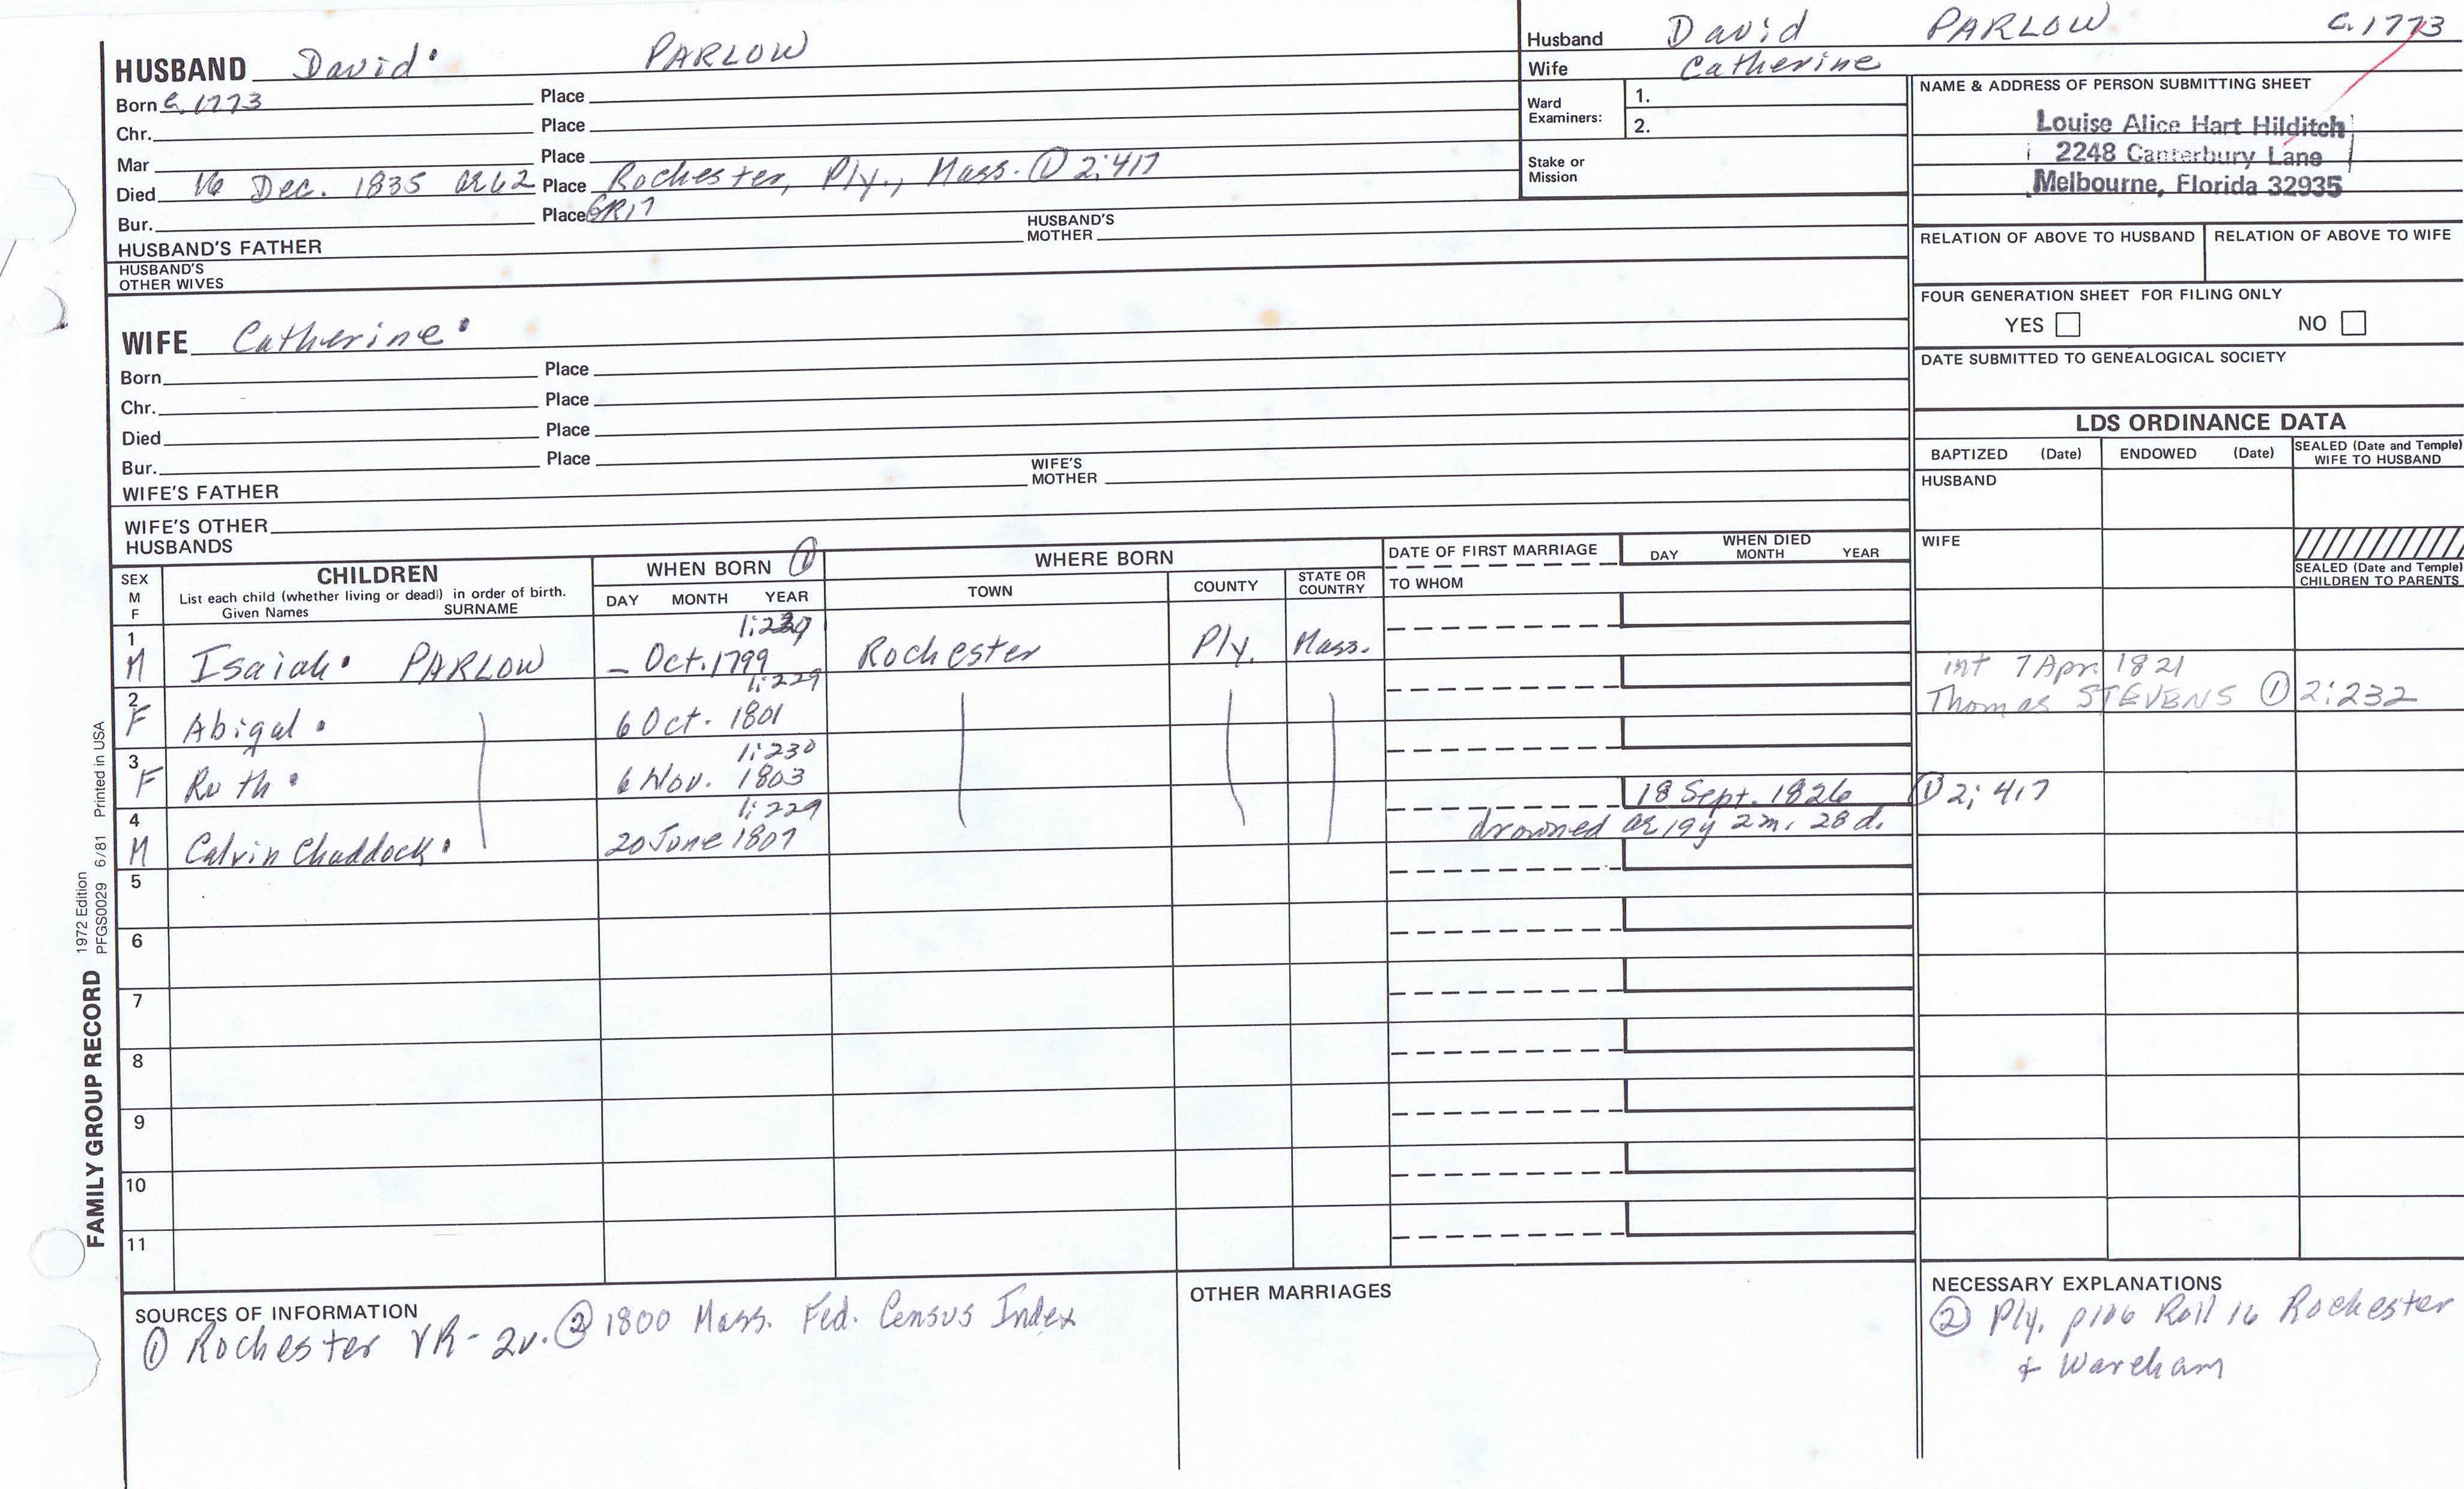 HUSBAND David PARLOW
Born c. 1773 Place
Chr. Place
Mar Place
Died 16 Dec. 1835 ae 62 Place Rochester, Ply., Mass. ① 2:417
Bur. Place GR17
HUSBAND'S FATHER HUSBAND'S MOTHER
HUSBAND'S OTHER WIVES
WIFE Catherine
Born Place
Chr. Place
Died Place
Bur. Place
WIFE'S FATHER WIFE'S MOTHER
WIFE'S OTHER HUSBANDS
Husband David PARLOW c. 1773
Wife Catherine
Ward Examiners: 1.
2.
Stake or Mission
NAME & ADDRESS OF PERSON SUBMITTING SHEET
Louise Alice Hart Hilditch
2248 Canterbury Lane
Melbourne, Florida 32935
RELATION OF ABOVE TO HUSBAND RELATION OF ABOVE TO WIFE
FOUR GENERATION SHEET FOR FILING ONLY
YES NO
DATE SUBMITTED TO GENEALOGICAL SOCIETY
LDS ORDINANCE DATA
BAPTIZED (Date) ENDOWED (Date) SEALED (Date and Temple) WIFE TO HUSBAND
HUSBAND
WIFE
SEALED (Date and Temple) CHILDREN TO PARENTS
SEX M F
CHILDREN
List each child (whether living or dead) in order of birth.
Given Names SURNAME
WHEN BORN ①
DAY MONTH YEAR
WHERE BORN
TOWN COUNTY STATE OR COUNTRY
DATE OF FIRST MARRIAGE
TO WHOM
WHEN DIED
DAY MONTH YEAR
1:229
1 M Isaiah PARLOW – Oct. 1799 Rochester Ply. Mass.
1:229
2 F Abigal 6 Oct. 1801
int 7 Apr. 1821
Thomas STEVENS ① 2:232
1:230
3 F Ruth 6 Nov. 1803
1:229
4 M Calvin Chaddock 20 June 1807
18 Sept. 1826 ① 2; 417
drowned ae 19y 2m. 28d.
5
6
7
8
9
10
11
SOURCES OF INFORMATION
① Rochester VR- 2v. ② 1800 Mass. Fed. Census Index
OTHER MARRIAGES
NECESSARY EXPLANATIONS
② Ply. p106 Roll 16 Rochester
+ Wareham
FAMILY GROUP RECORD
1972 Edition
PFGS0029 6/81 Printed in USA